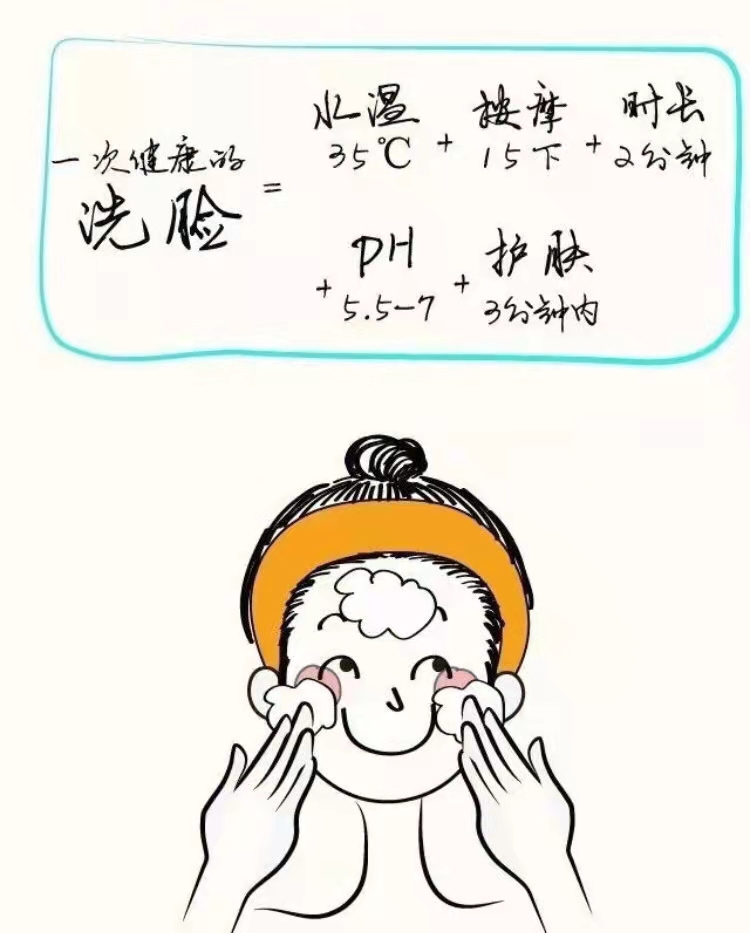 一次健康的
洗脸
=
水温 按摩 时长
35℃ + 15下 + 2分钟
PH 护肤
+ 5.5-7 + 3分钟内